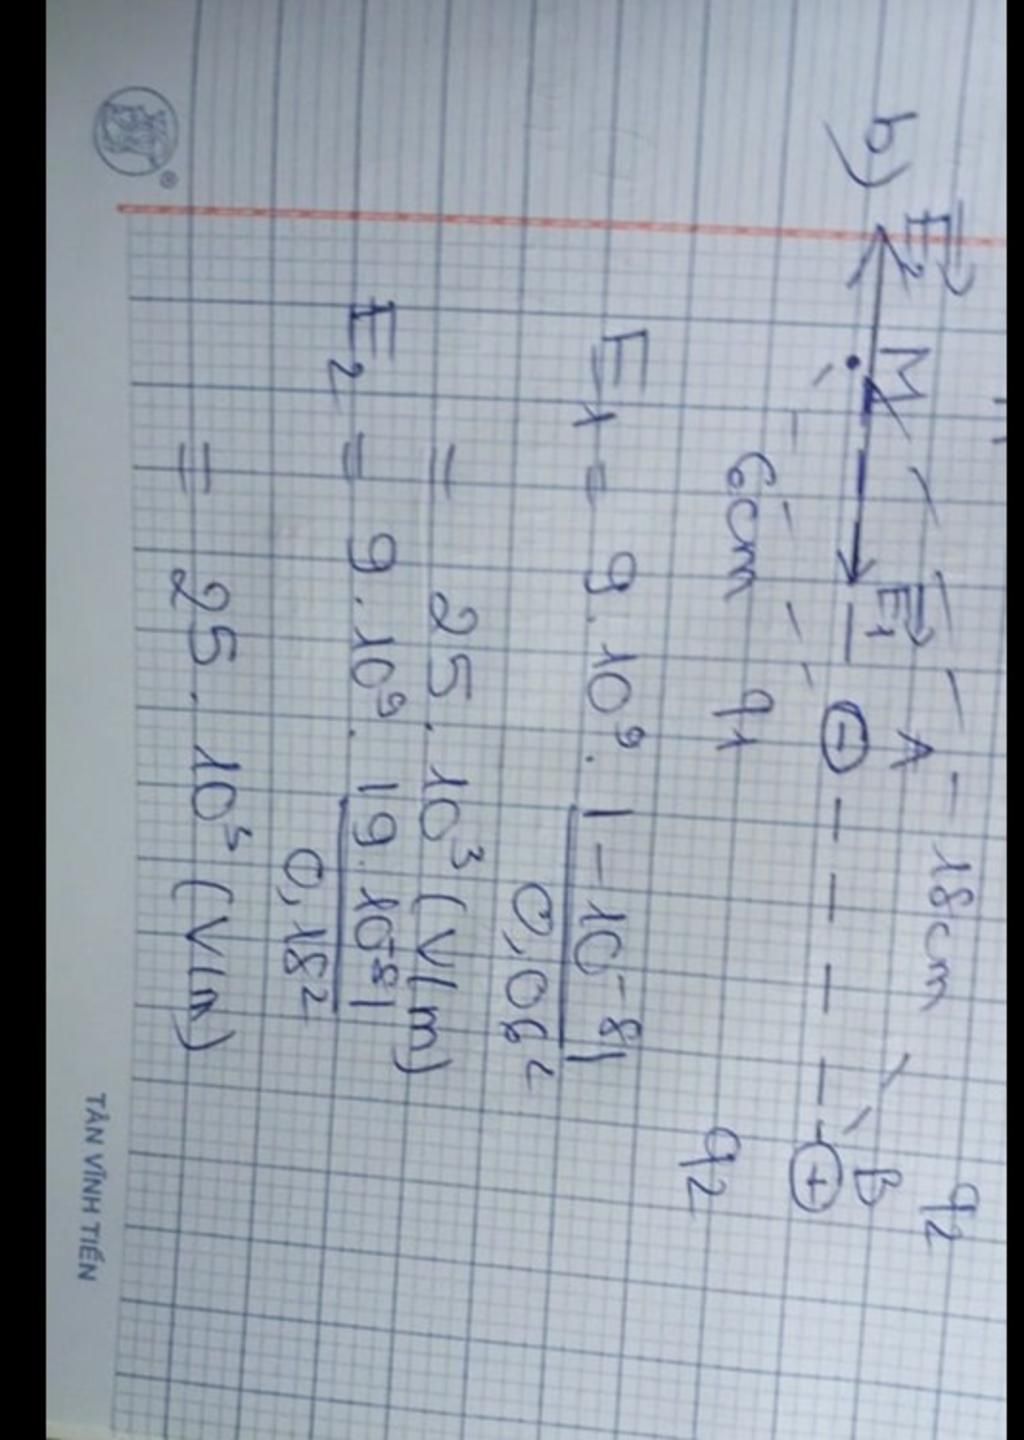 b) E₂ M E₁ A 18cm B q2
6cm q1 q2
E₁ = 9.10⁹. |-10⁻⁸| / 0,06²
= 25.10³ (V/m)
E₂ = 9.10⁹. |9.10⁻⁸| / 0,18²
= 25.10³ (V/m)
TÂN VĨNH TIẾN